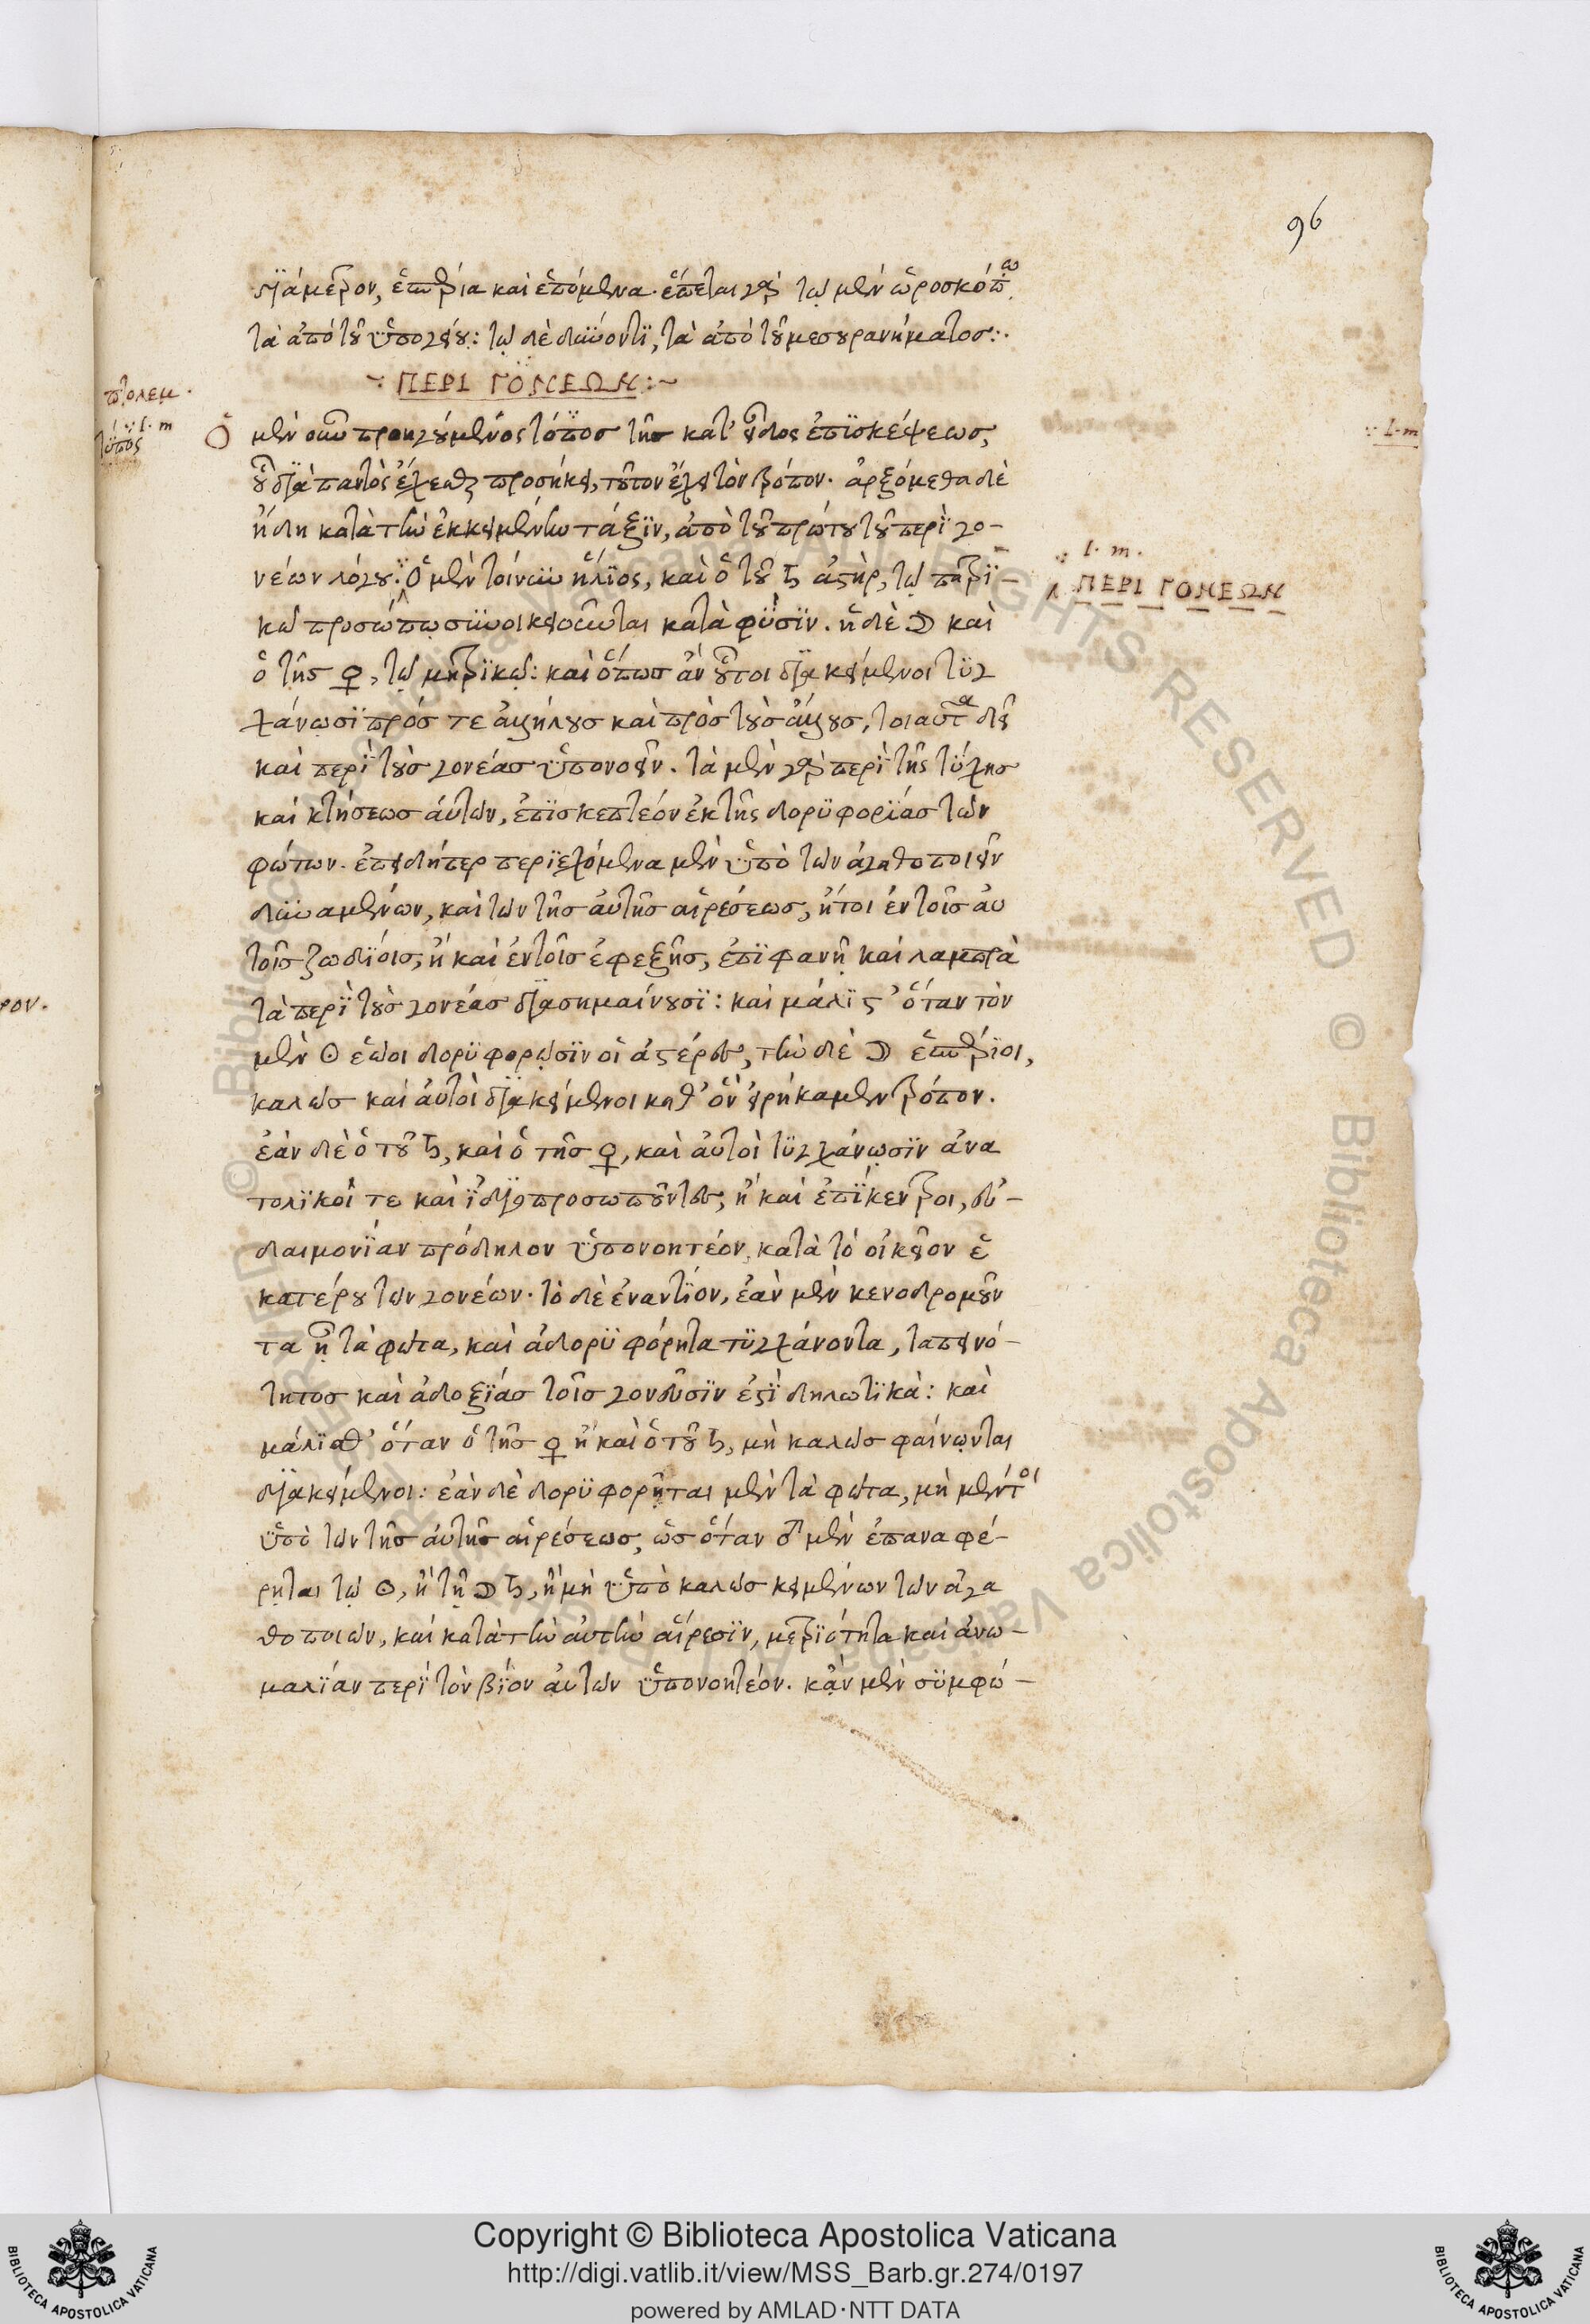 96
διάμετρον, ἑσπέρια καὶ ἑπόμενα. ἕπεται γὰρ τῷ μὲν ὡροσκόπῳ
τὰ ἀπὸ τοῦ ὑπογείου: τῷ δὲ δύνοντι, τὰ ἀπὸ τοῦ μεσουρανήματος:.
ΠΕΡΙ ΓΟΝΕΩΝ:~
πτολεμ.
l. m
τύπος
Ὁ μὲν οὖν προηγούμενος τόπος τῆς κατ' εἶδος ἐπισκέψεως,
l. m
οὗ διὰ παντὸς ἔχεσθαι προσήκει, τοῦτον ἔχει τὸν τρόπον. ἀρξόμεθα δὲ
ἤδη κατὰ τὴν ἐκκειμένην τάξιν, ἀπὸ τοῦ πρώτου τοῦ περὶ γο-
νέων λόγου. Ὁ μὲν τοίνυν ἥλιος, καὶ ὁ τοῦ ♄ ἀστὴρ, τῷ πατρι-
l. m.
ΠΕΡΙ ΓΟΝΕΩΝ
κῷ προσώπῳ συνοικειοῦνται κατὰ φύσιν. ἡ δὲ ☽ καὶ
ὁ τῆς ♀, τῷ μητρικῷ: καὶ ὅπως ἂν οὗτοι διακείμενοι τυγ
χάνωσι πρός τε ἀλλήλους καὶ πρὸς τοὺς ἄλλους, τοιαῦτα δεῖ
καὶ περὶ τοὺς γονέας ὑπονοεῖν. τὰ μὲν γὰρ περὶ τῆς τύχης
καὶ κτήσεως αὐτῶν, ἐπισκεπτέον ἐκ τῆς δορυφορίας τῶν
φώτων. ἐπειδήπερ περιεχόμενα μὲν ὑπὸ τῶν ἀγαθοποιεῖν
δυναμένων, καὶ τῶν τῆς αὐτῆς αἱρέσεως, ἤτοι ἐν τοῖς αὐ
τοῖς ζωδίοις, ἢ καὶ ἐν τοῖς ἐφεξῆς, ἐπιφανῆ καὶ λαμπρὰ
τὰ περὶ τοὺς γονέας διασημαίνουσι: καὶ μάλιστ' ὅταν τὸν
μὲν ☉ ἑῷοι δορυφορῶσιν οἱ ἀστέρες, τὴν δὲ ☽ ἑσπέριοι,
καλῶς καὶ αὐτοὶ διακείμενοι καθ' ὃν εἰρήκαμεν τρόπον.
ἐὰν δὲ ὁ τοῦ ♄, καὶ ὁ τῆς ♀, καὶ αὐτοὶ τυγχάνωσιν ἀνα
τολικοί τε καὶ ἰδιοπροσωποῦντες, ἢ καὶ ἐπίκεντροι, εὐ-
δαιμονίαν πρόδηλον ὑπονοητέον, κατὰ τὸ οἰκεῖον ἑ
κατέρου τῶν γονέων. τὸ δὲ ἐναντίον, ἐὰν μὲν κενοδρομοῦν
τα ᾖ τὰ φῶτα, καὶ ἀδορυφόρητα τυγχάνοντα, ταπεινό-
τητος καὶ ἀδοξίας τοῖς γονεῦσιν ἐστὶ δηλωτικὰ: καὶ
μάλισθ' ὅταν ὁ τῆς ♀ ἢ καὶ ὁ τοῦ ♄, μὴ καλῶς φαίνωνται
διακείμενοι: ἐὰν δὲ δορυφορῆται μὲν τὰ φῶτα, μὴ μέντοι
ὑπὸ τῶν τῆς αὐτῆς αἱρέσεως, ὡς ὅταν ♂ μὲν ἐπαναφέ-
ρηται τῷ ☉, ἢ τῇ ☽ ♄, ἢ μὴ ὑπὸ καλῶς κειμένων τῶν ἀγα
θοποιῶν, καὶ κατὰ τὴν αὐτὴν αἵρεσιν, μετριότητα καὶ ἀνω-
μαλίαν περὶ τὸν βίον αὐτῶν ὑπονοητέον. κἂν μὲν σύμφω-
ρον.
© Biblioteca Apostolica Vaticana ALL RIGHTS RESERVED
Copyright © Biblioteca Apostolica Vaticana
http://digi.vatlib.it/view/MSS_Barb.gr.274/0197
powered by AMLAD·NTT DATA
BIBLIOTECA APOSTOLICA VATICANA
BIBLIOTECA APOSTOLICA VATICANA